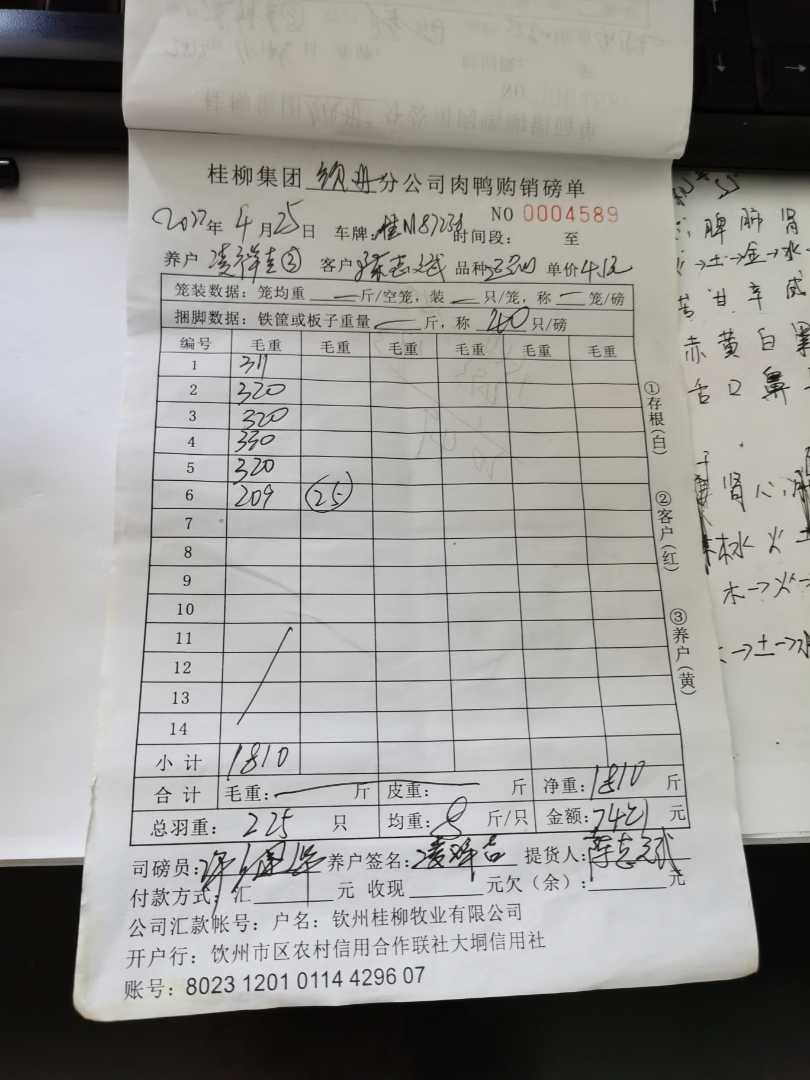 桂柳集团 钦州 分公司肉鸭购销磅单
NO 0004589
2022年4月25日 车牌: 桂N 时间段: 至
养户 客户 陈志武 品种 单价 4.1元
笼装数据: 笼均重 — 斤/空笼, 装 — 只/笼, 称 — 笼/磅
捆脚数据: 铁筐或板子重量 — 斤, 称 40 只/磅
编号 毛重 毛重 毛重 毛重 毛重 毛重
1 311
2 320
3 320
4 330
5 320
6 209 25
7
8
9
10
11
12
13
14
小计 1810
合计 毛重: — 斤 皮重: 斤 净重: 1810 斤
总羽重: 225 只 均重: 8 斤/只 金额: 7421 元
①存根(白)
②客户(红)
③养户(黄)
司磅员: 养户签名: 提货人: 陈志武
付款方式: 汇 元 收现 元欠(余): 元
公司汇款帐号: 户名: 钦州桂柳牧业有限公司
开户行: 钦州市区农村信用合作联社大垌信用社
账号: 8023 1201 0114 4296 07
脾 肺 肾
土→金→水
甘 辛 咸
赤 黄 白 黑
舌 口 鼻
肾 心
水 火 土
木→火
→土→水